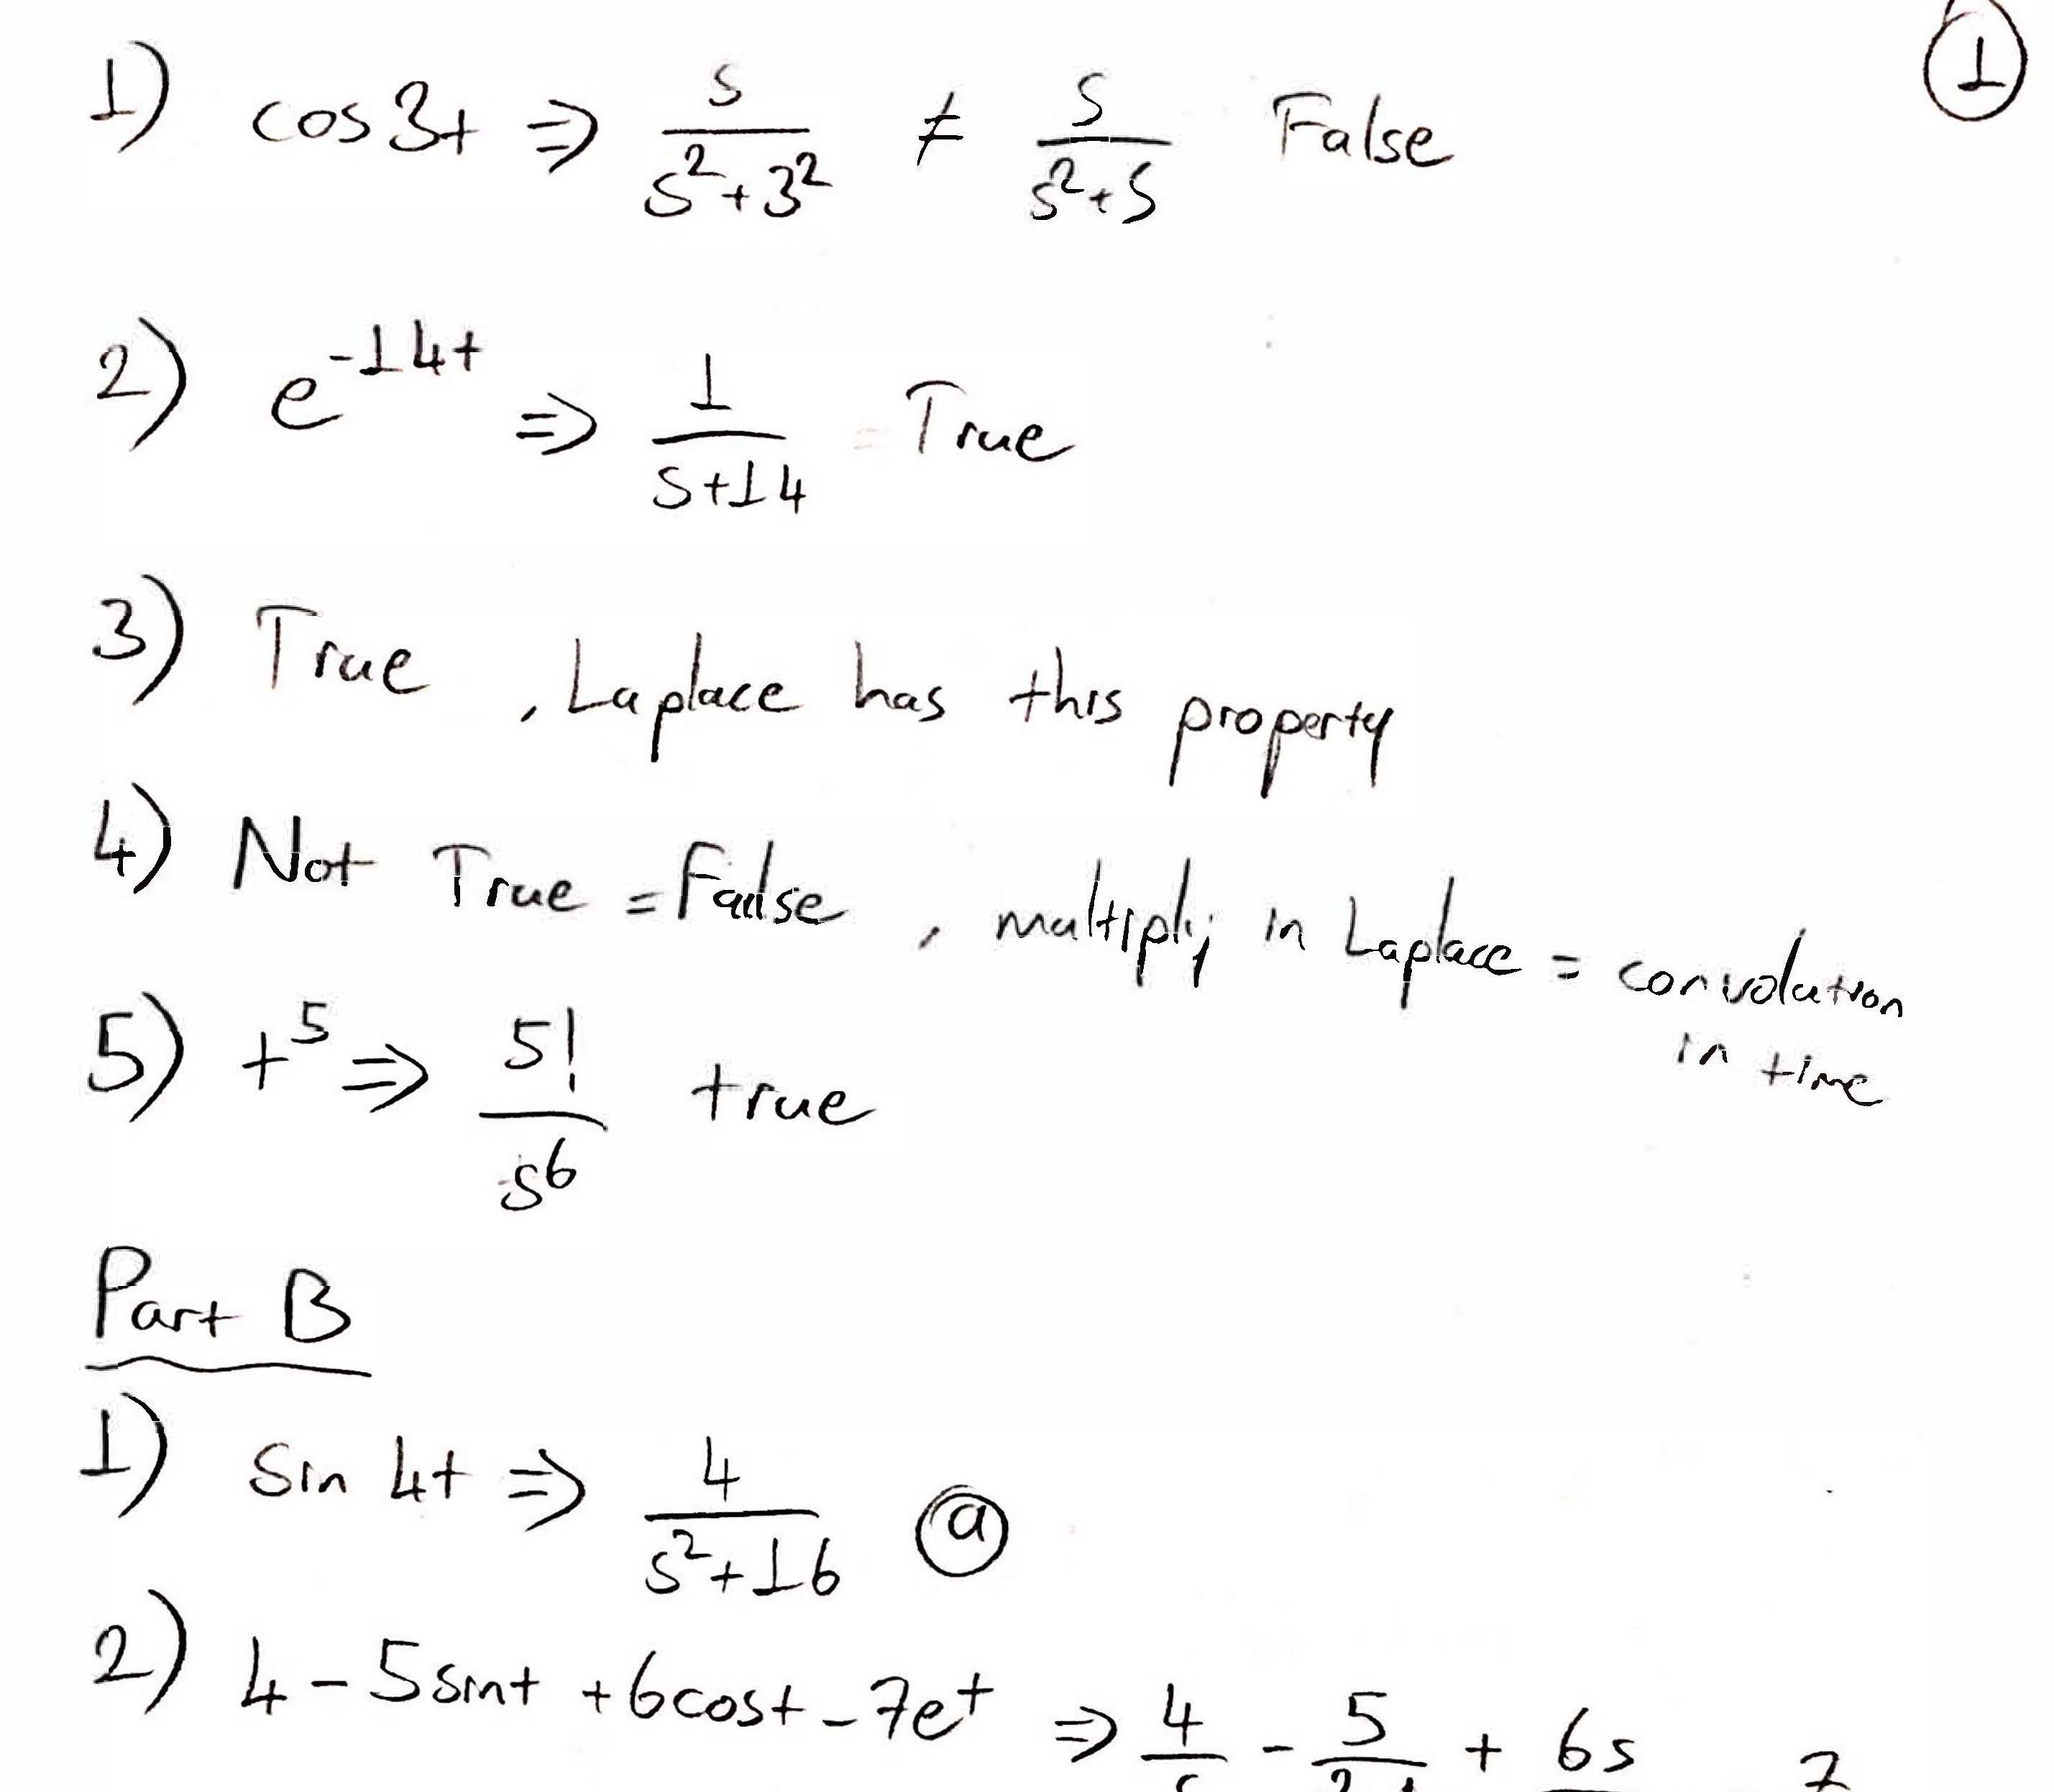 ①
1) cos3t ⇒ s/(s²+3²) ≠ s/(s²+5) False
2) e^(-14t) ⇒ 1/(s+14) = True
3) True , Laplace has this property
4) Not True = False , multiply in Laplace = convolution
in time
5) t⁵ ⇒ 5!/s⁶ true
Part B
1) Sin 4t ⇒ 4/(s²+16) ⓐ
2) 4 - 5sint + 6cost - 7e^t ⇒ 4/s - 5/ + 6s 7